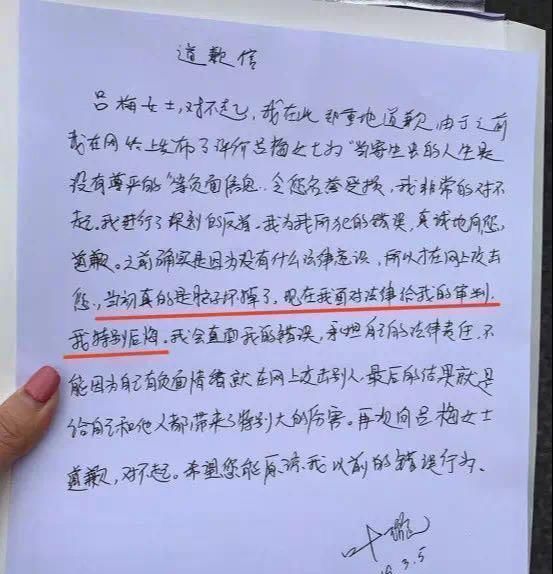 道歉信
吕梅女士，对不起，我在此郑重地道歉，由于之前
我在网络上发布了评价吕梅女士为“当寄生虫的人生是
没有尊严的”等负面信息，令您名誉受损，我非常的对不
起。我进行了深刻的反省。我为我所犯的错误，真诚地向您，
道歉。之前确实是因为没有什么法律意识，所以才在网上攻击
您，当初真的是脑子坏掉了，现在我面对法律给我的审判，
我特别后悔。我会直面我的错误，承担自己的法律责任，不
能因为自己有负面情绪就在网上攻击别人，最后的结果就是
给自己和他人都带来了特别大的伤害。再次向吕梅女士
道歉，对不起。希望您能原谅我以前的错误行为。
叶璇
19.3.5